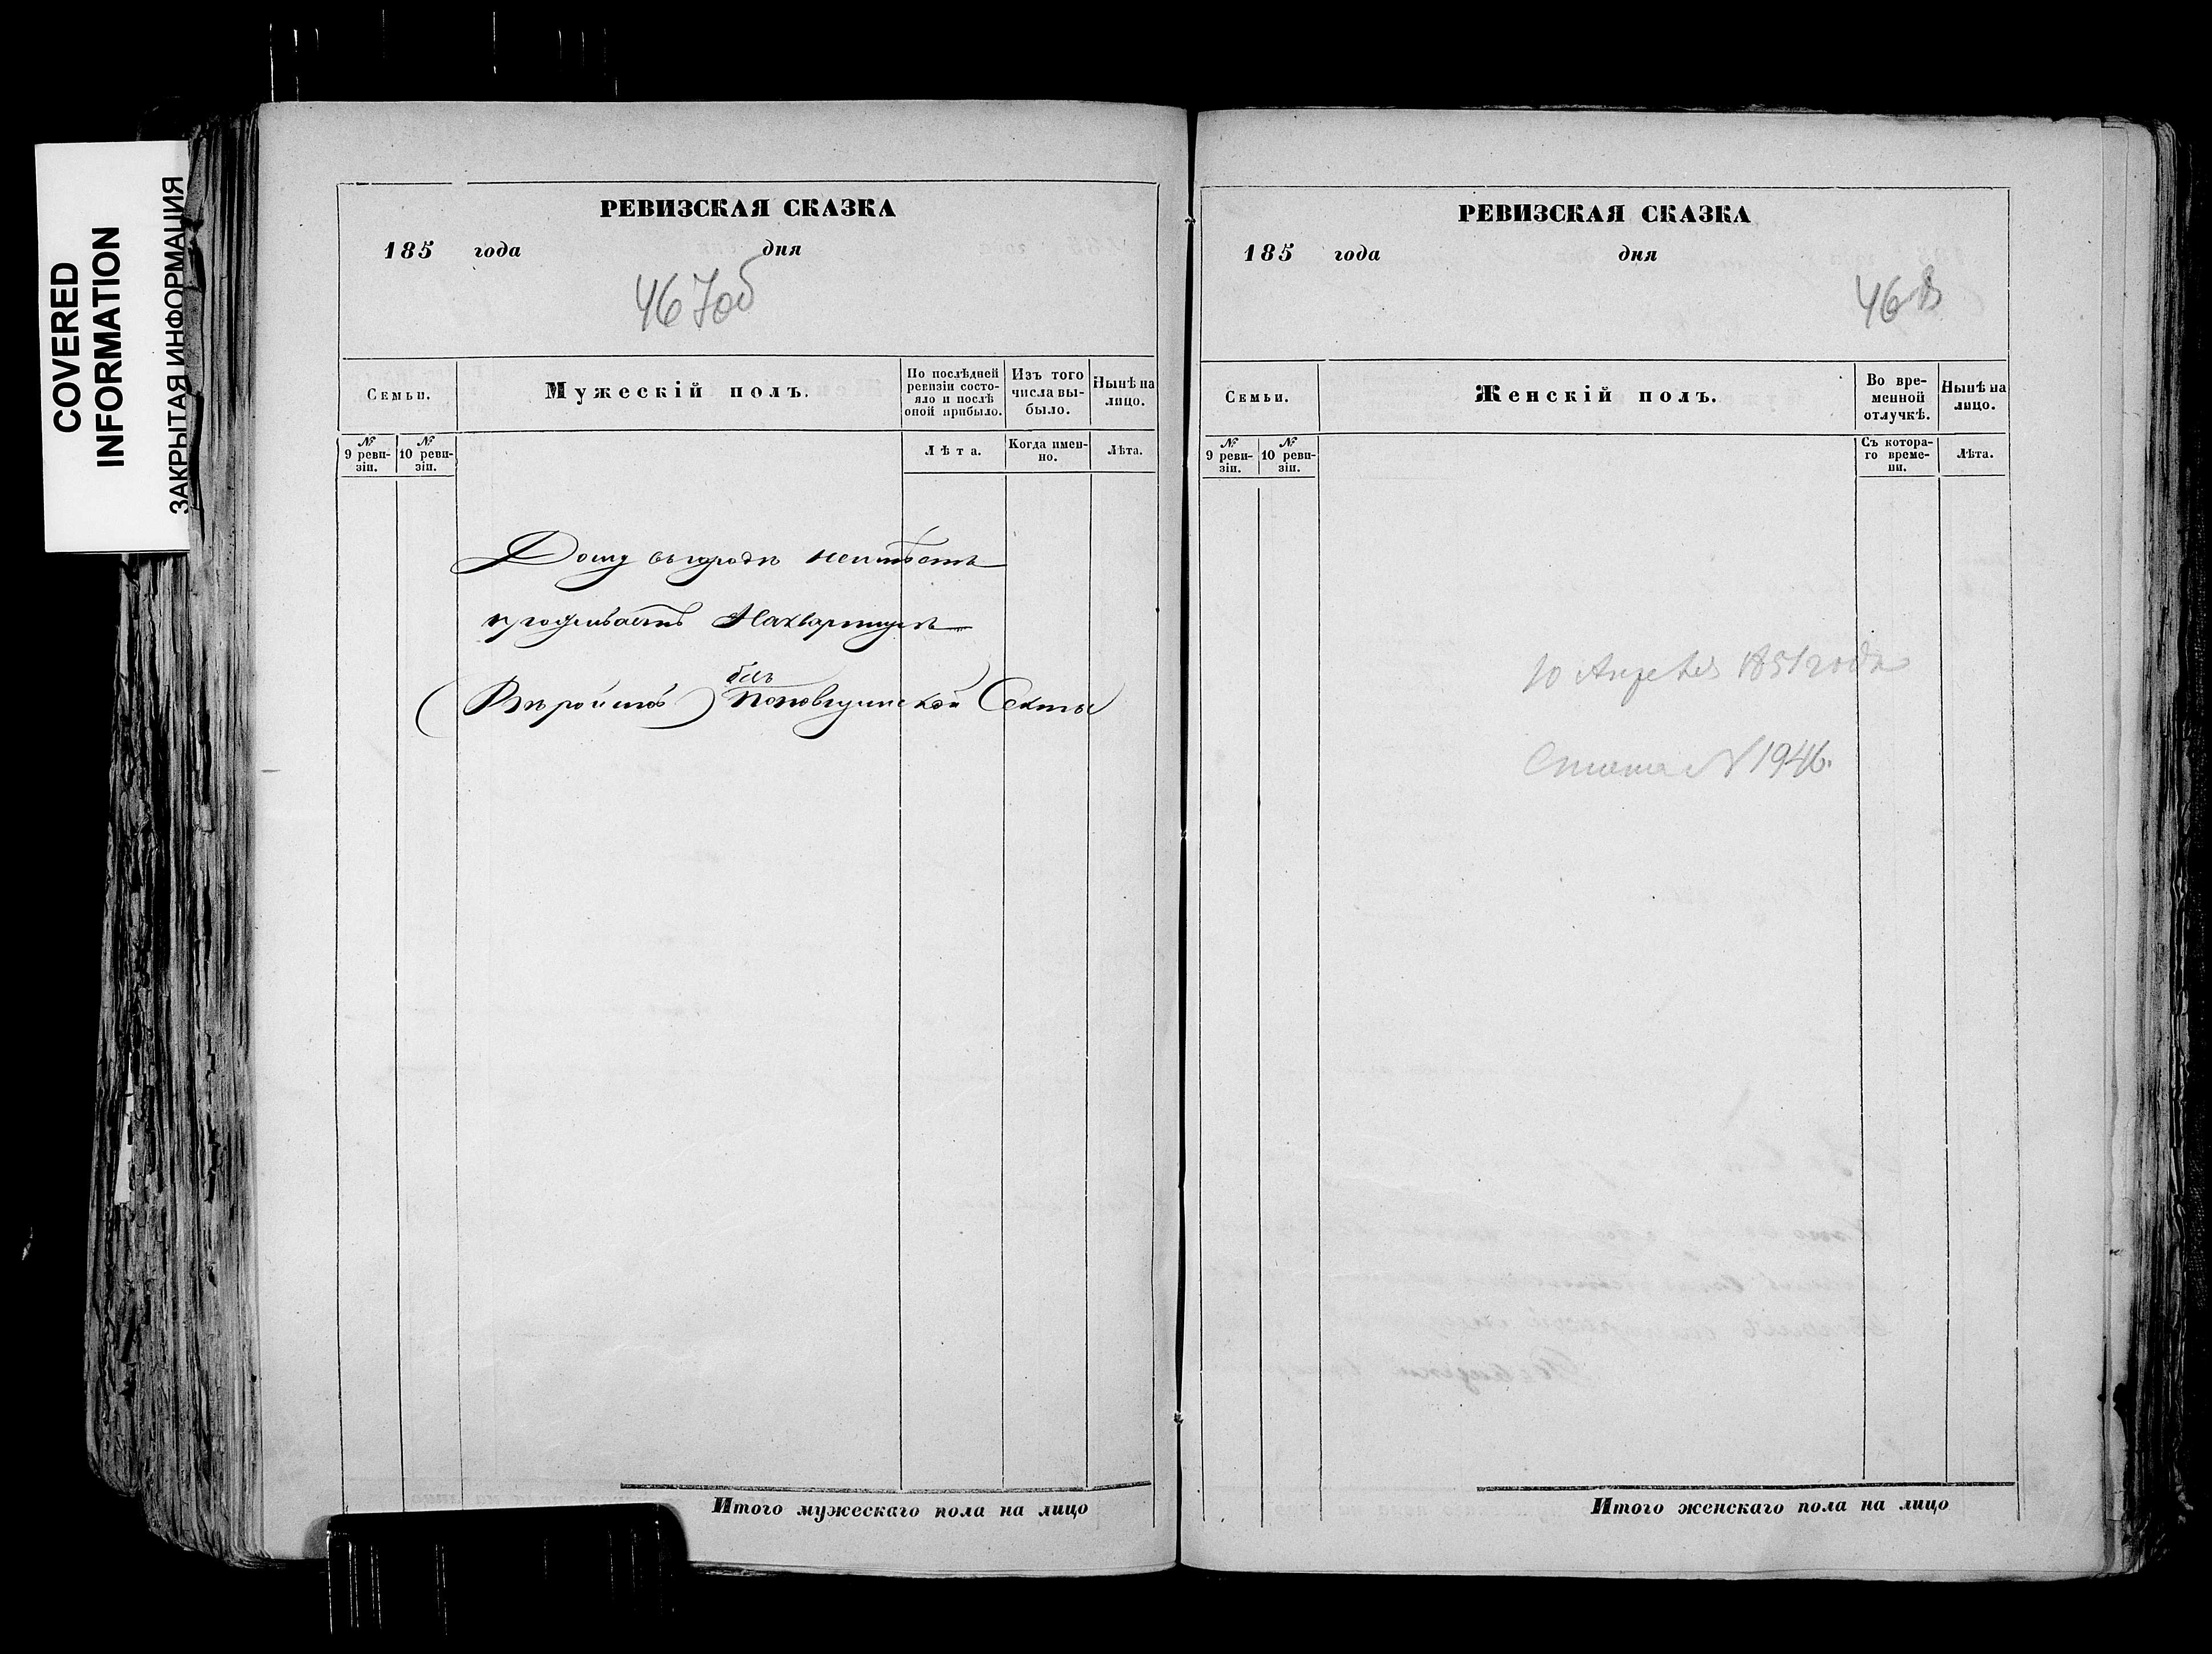 COVERED
INFORMATION
ЗАКРЫТАЯ ИНФОРМАЦИЯ
РЕВИЗСКАЯ СКАЗКА
185 года дня
467об
Семьи.
Мужескій полъ.
По послѣдней ревизіи состояло и послѣ оной прибыло.
Изъ того числа выбыло.
Нынѣ на лицо.
№ 9 ревизіи.
№ 10 ревизіи.
Лѣта.
Когда именно.
Лѣта.
Дому въ городѣ неимѣетъ
проживаетъ Наквартирѣ
без
(Вѣроисп) Поповщинской Секты
Итого мужескаго пола на лицо
РЕВИЗСКАЯ СКАЗКА
185 года дня
468
Семьи.
Женскій полъ.
Во временной отлучкѣ.
Нынѣ на лицо.
№ 9 ревизіи.
№ 10 ревизіи.
Съ котораго времени.
Лѣта.
10 Апрѣля 1851 года
N 1946.
Итого женскаго пола на лицо